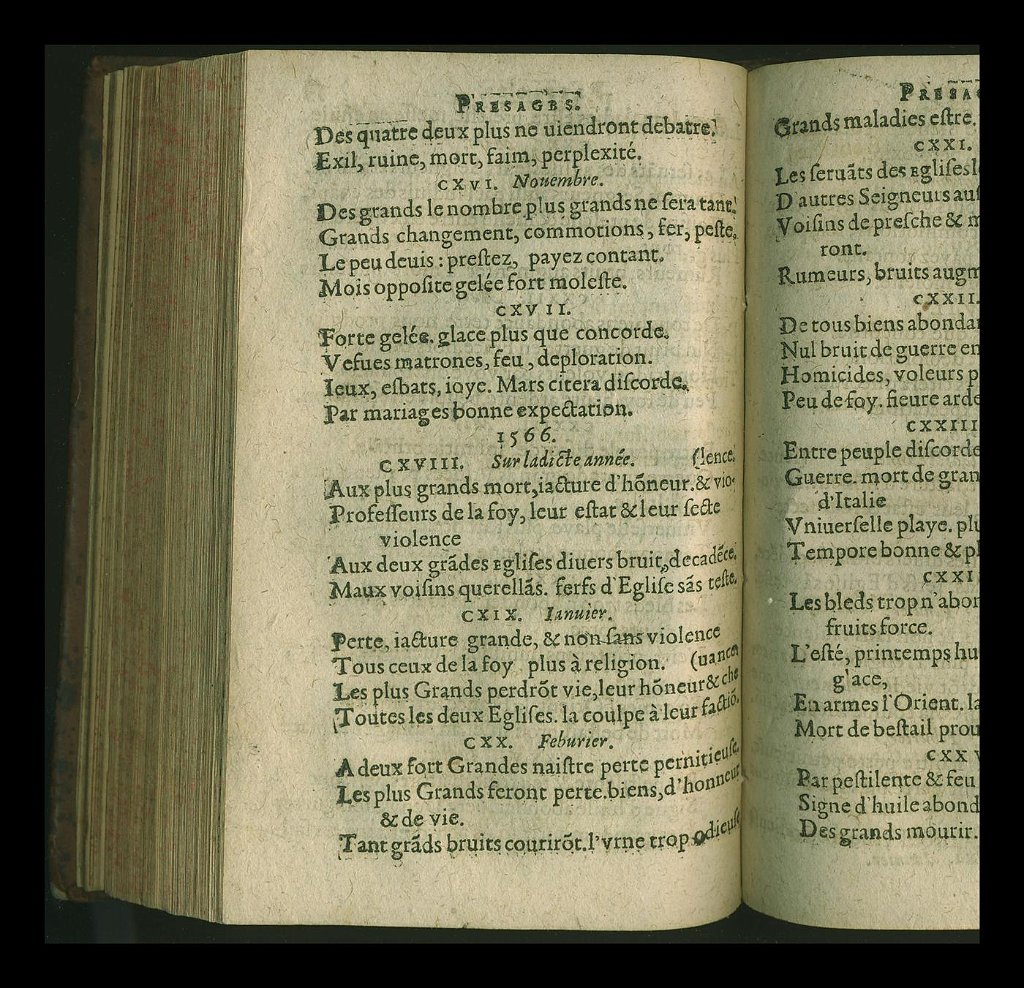 PRESAGES.
Des quatre deux plus ne uiendront debatre.
Exil, ruine, mort, faim, perplexité.
CXVI. Nouembre.
Des grands le nombre plus grands ne ſera tant.
Grands changement, commotions, fer, peſte,
Le peu deuis: preſtez, payez contant.
Mois oppoſite gelée fort moleſte.
CXVII.
Forte gelée. glace plus que concorde.
Vefues matrones, feu, deploration.
Ieux, eſbats, ioye. Mars citera diſcorde.
Par mariages bonne expectation.
1566.
CXVIII. Sur ladicte année. (lence.
Aux plus grands mort, iacture d'hõneur. & vio-
Profeſſeurs de la foy, leur eſtat & leur ſecte
violence
Aux deux grãdes Egliſes diuers bruit, decadẽce.
Maux voiſins querellãs. ſerfs d'Egliſe sãs teſte.
CXIX. Ianuier.
Perte, iacture grande, & non ſans violence
Tous ceux de la foy plus à religion. (uance
Les plus Grands perdrõt vie, leur hõneur & che
Toutes les deux Egliſes. la coulpe à leur factiõ.
CXX. Feburier.
A deux fort Grandes naiſtre perte pernitieuſe.
Les plus Grands feront perte. biens, d'honneur
& de vie.
Tant grãds bruits courirõt. l'vrne trop odieuſe
PRESAG
Grands maladies eſtre.
CXXI.
Les ſeruãts des Egliſes l
D'autres Seigneurs au
Voiſins de preſche & m
ront.
Rumeurs, bruits augm
CXXII.
De tous biens abonda
Nul bruit de guerre en
Homicides, voleurs p
Peu de foy. fieure arde
CXXIII
Entre peuple diſcorde
Guerre. mort de gran
d'Italie
Vniuerſelle playe. plu
Tempore bonne & pl
CXXI
Les bleds trop n'abon
fruits force.
L'eſté, printemps hu
g'ace,
En armes l'Orient. la
Mort de beſtail prou
CXXV
Par peſtilente & feu
Signe d'huile abond
Des grands mourir.